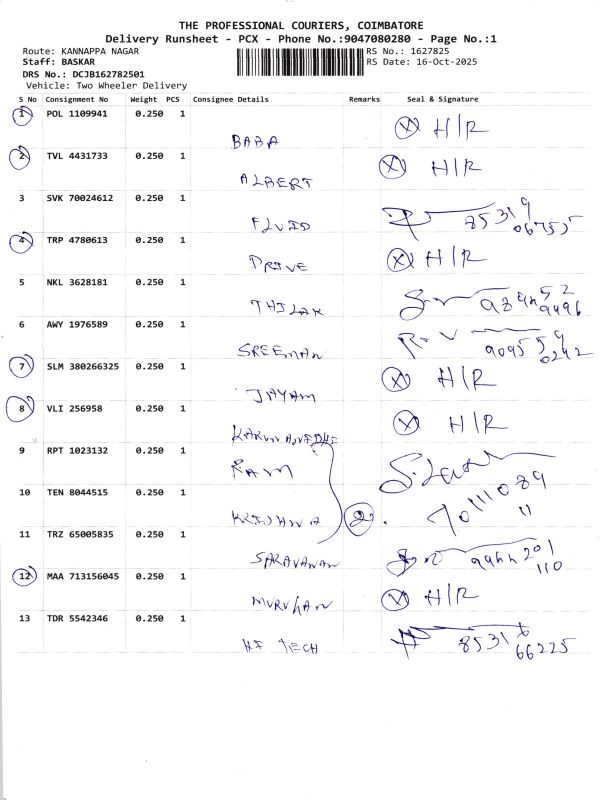 THE PROFESSIONAL COURIERS, COIMBATORE
Delivery Runsheet - PCX - Phone No.:9047080280 - Page No.:1
Route: KANNAPPA NAGAR RS No.: 1627825
Staff: BASKAR RS Date: 16-Oct-2025
DRS No.: DCJB162782501
Vehicle: Two Wheeler Delivery
S No Consignment No Weight PCS Consignee Details Remarks Seal & Signature
1 POL 1109941 0.250 1 X H/R
BABA
2 TVL 4431733 0.250 1 X H/R
ALBERT
3 SVK 70024612 0.250 1
FLUID
4 TRP 4780613 0.250 1 X H/R
DRIVE
5 NKL 3628181 0.250 1
THILAK
6 AWY 1976589 0.250 1
SREEMAN
7 SLM 380266325 0.250 1 X H/R
JAYAM
8 VLI 256958 0.250 1 X H/R
9 RPT 1023132 0.250 1
RAM
10 TEN 8044515 0.250 1
KRISHNA 2
11 TRZ 65005835 0.250 1
SARAVANAN
12 MAA 713156045 0.250 1 X H/R
MURUHAN
13 TDR 5542346 0.250 1
HI TECH 66225